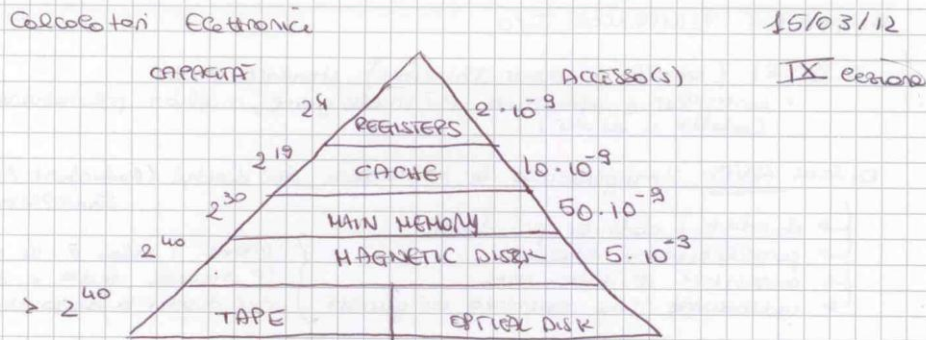 Calcolatori Elettronici 15/03/12
CAPACITÀ ACCESSO(S) IX lezione
2^4 REGISTERS 2·10^-9
2^19 CACHE 10·10^-9
2^30 MAIN MEMORY 50·10^-9
2^40 MAGNETIC DISK 5·10^-3
> 2^40 TAPE OPTICAL DISK